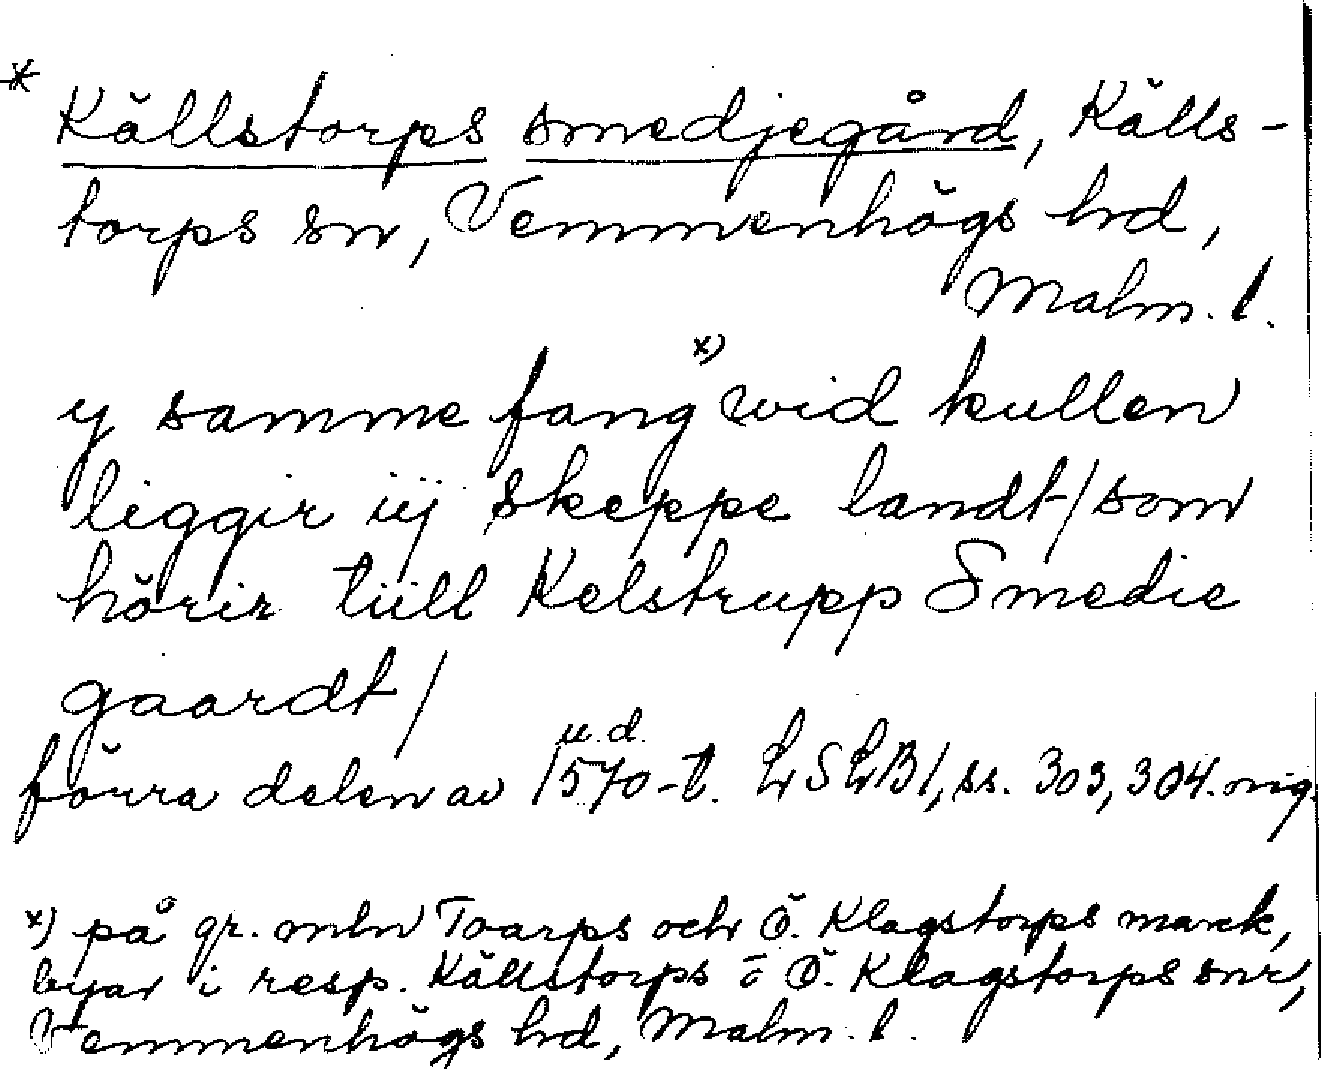 * Källstorps smedjegård, Källs-
torps sn, Vemmenhögs hd,
Malm. l.
y samme fang x) wid kullen
liggir iij skeppe landt/som
hörir tiill Kelstrupp Smedie
gaardt/
förra delen av 1570-t. u.d. LSLB1, ss. 303, 304. nig.
x) på gr. mln Toarps och Ö. Klagstorps mark,
byar i resp. Källstorps o Ö. Klagstorps snr,
Vemmenhögs hd, Malm. l.